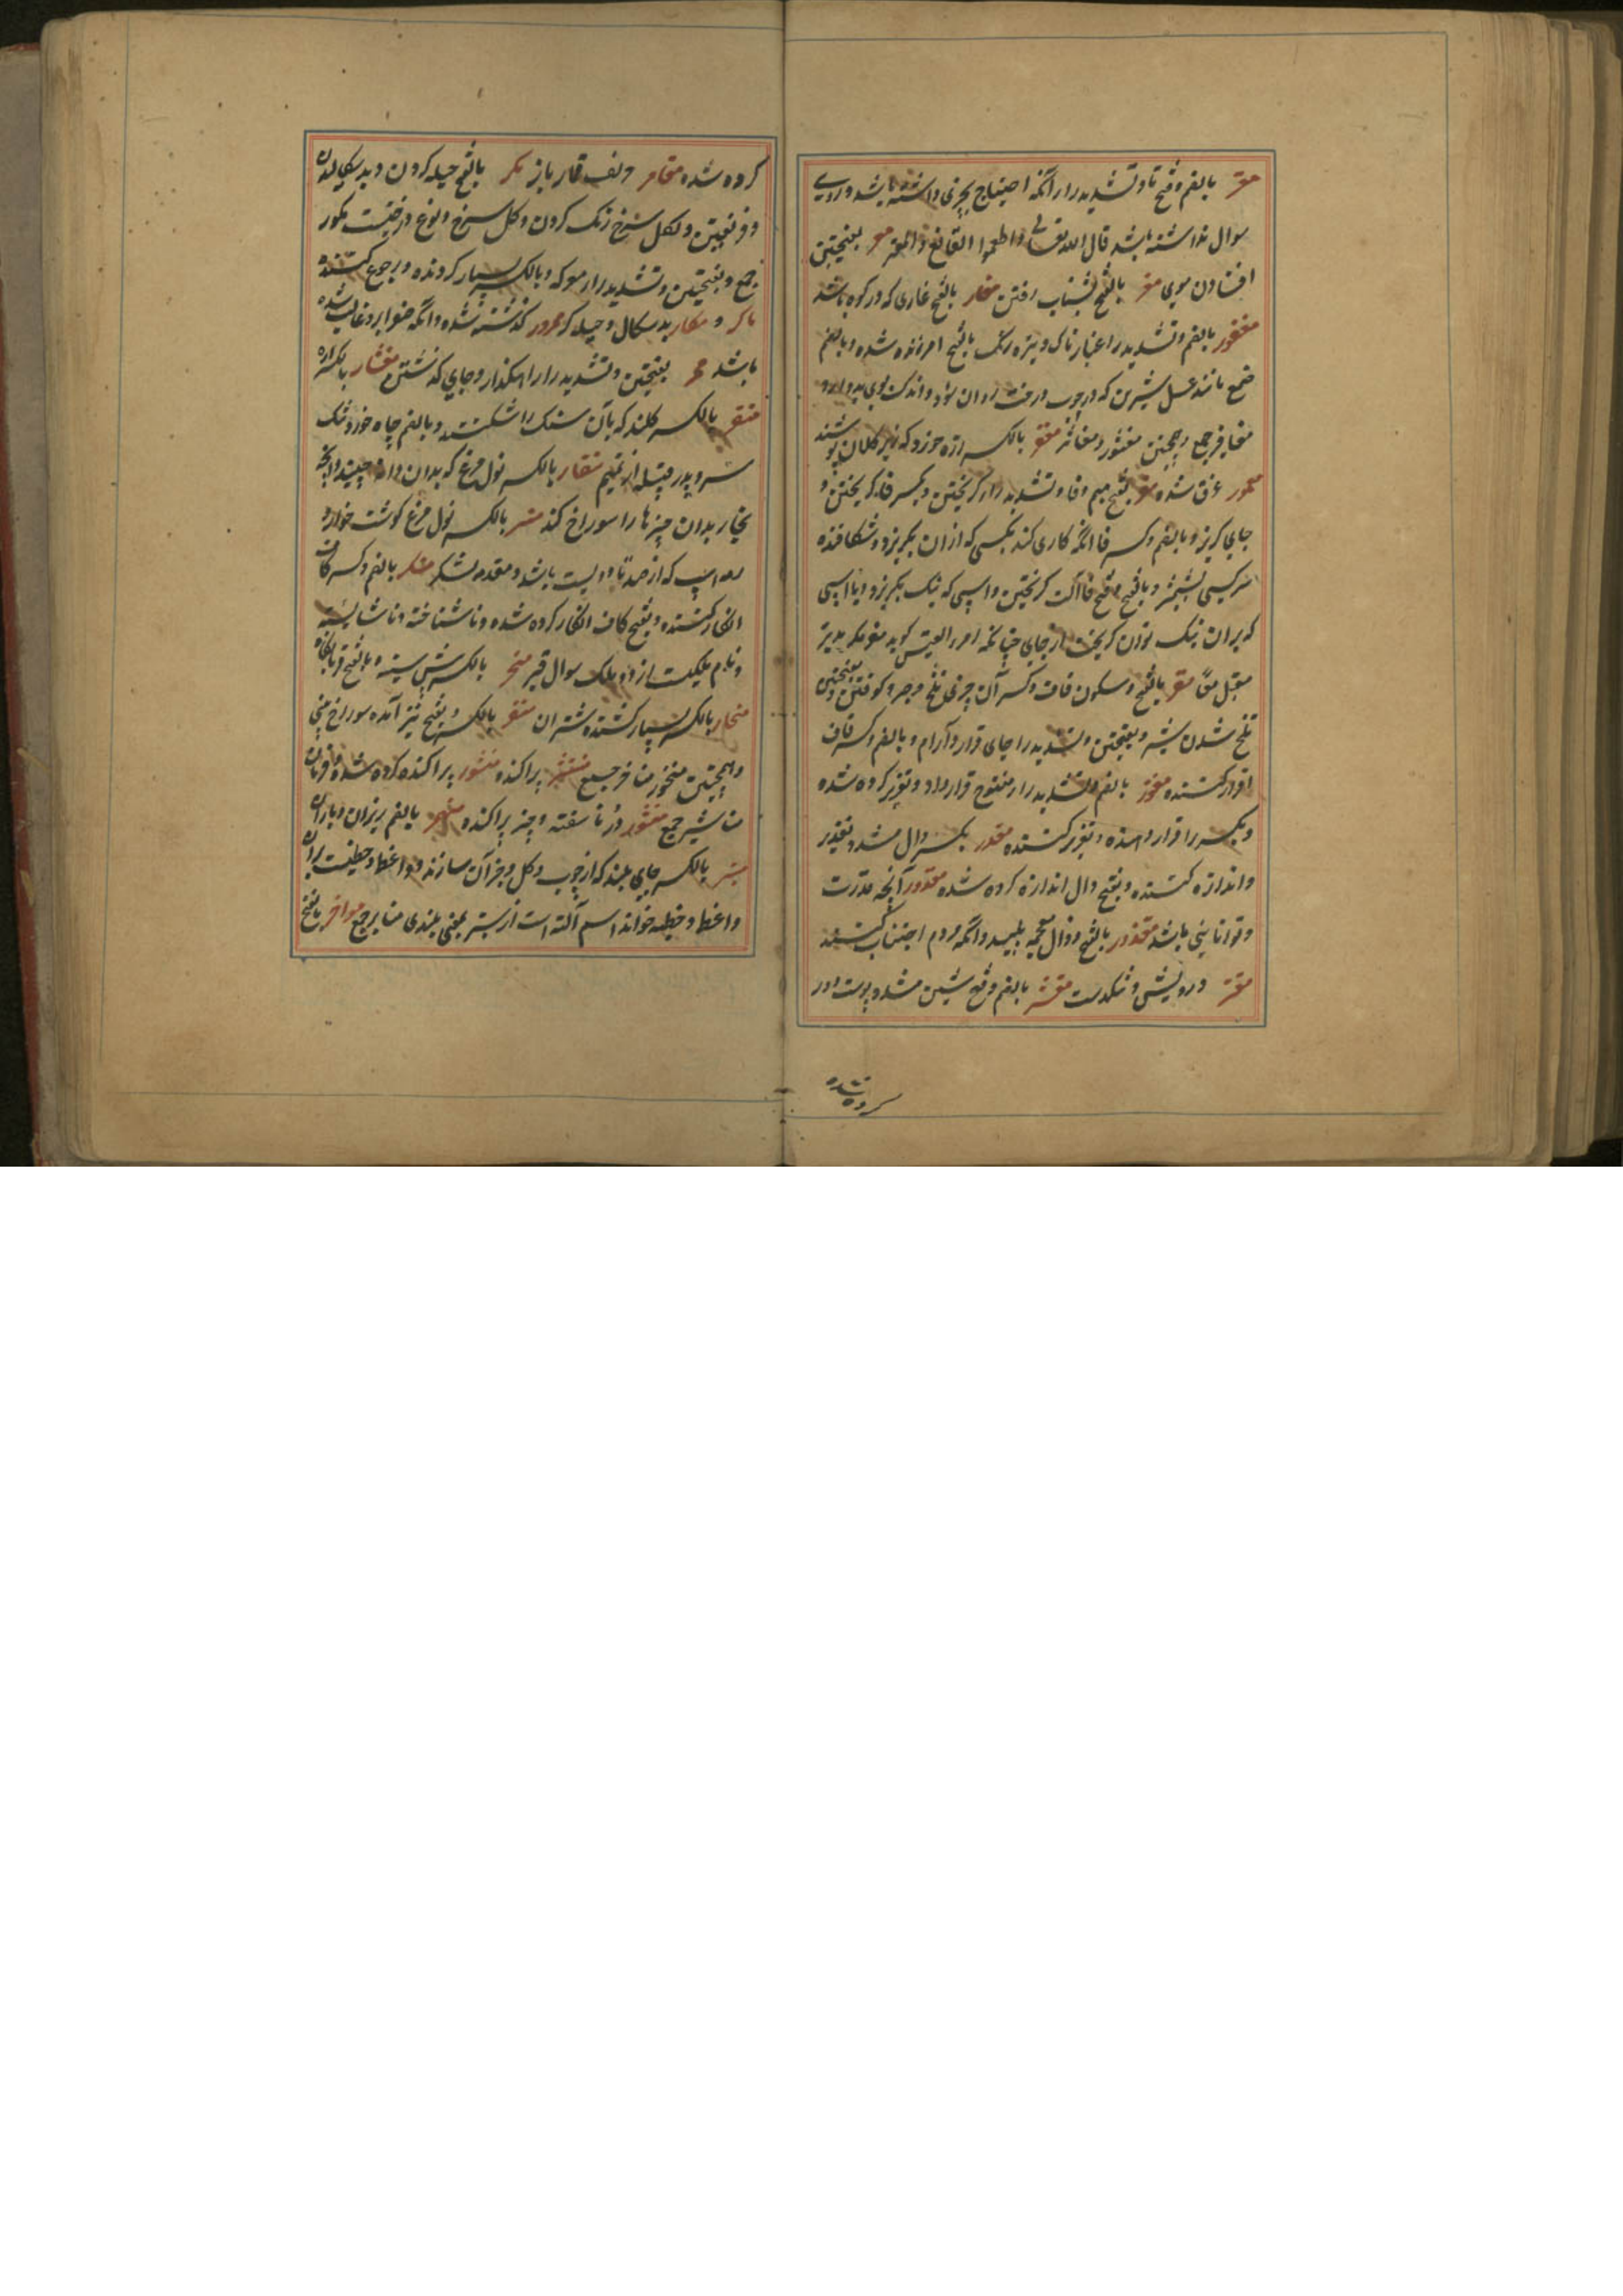 معتر بالضم و فتح تا و تشدید را آنکه احتیاج بچیزی داشته باشد و روی
سوال نداشته باشد قال الله تعالی و اطعموا القانع و المعتر معر بفتحتین
افتادن موی مغر بالفتح بشتاب رفتن مغار بالفتح غاری که در کوه باشد
مغفور بالضم و تشدید را غبارناک و تیره رنک بالفتح امرزیده شده و بالضم
صمغ مانند عسل شیرین که در چوب درخت روان شود و اندک بوی بد دارد
مغافیر جمع و همچنین مغثور و مغاثر مغفر بالکسر زره خورد که زیر کلاه پوشند
غرق شده مفر بفتح میم و فا و تشدید را کریختن و بکسر فا کریختن و
جای کریز و بالضم و کسر فا آنکه کاری کند بکسی که از ان بکریزد و شکافنده
سر کسی بشمشیر و بالفتح و فتح فا آلت کریختن و اسپی که نیک بکریزد و یا اسپی
که بران نیک توان کریخت از جای چنانکه امرء القیس کوید مفر مکر مدبر
مقبل معًا مقر بالفتح و سکون قاف و کسر آن چیزی تلخ و صبر و کوفتن و بفتحتین
تلخ شدن شیر و بفتحتین و تشدید را جای قرار و آرام و بالضم و کسر قاف
اقرار کننده مقرر بالضم و تشدید را مفتوح قرار داد و تقریر کرده شده
و بکسر را قرار دهنده و تقریر کننده مقدر بکسر دال مشدد تقدیر
و اندازه کننده و بفتح دال اندازه کرده شده مقدور آنچه قدرت
و توانایی باشد مقذور بالفتح و ذال معجمه پلید و آنکه مردم اجتناب کنند
مقتر درویش و تنکدست مقشر بالضم و فتح شین مشدد پوست دور
کرده شده
کرده شده مقامر حریف قمار باز مکر بالفتح حیله کردن و بد سکالیدن
و فریفتن و بکل سرخ رنک کردن و کل سرخ و نوع درختیست مکور
جمع و بفتحتین و تشدید را معرکه و بالکسر بسیار کردنده و رجوع کننده
ماکر و مکار بد سکال و حیله کر ممرور کذشته شده و آنکه صفرا برو غالب شده
باشد ممر بفتحتین و تشدید را راهکذار و جای کذشتن منشار بالکسر اره
منقر بالکسر کلند که بآن سنک را شکنند و بالضم چاه خورد تنک
سر و پدر قبیله از تمیم منقار بالکسر نول مرغ که بدان دانه چیند و آنچه
نجار بدان چیزها را سوراخ کند منسر بالکسر نول مرغ کوشت خوار و
رمه اسپ که از صد تا دویست باشد و مقدمه لشکر منکر بالضم و کسر کاف
انکار کننده و بفتح کاف انکار کرده شده و ناشناخته و ناشایسته
و نام ملکیست از دو ملک سوال قبر منحر بالکسر پیش سینه و بالفتح قربانکاه
منحار بالکسر بسیار کشنده شتران منخر بالکسر و بفتح نیز آمده سوراخ بینی
و همچنین منخور مناخر جمع منتشر پراکنده منشور پراکنده کرده شده و فرمان
مناشیر جمع منثور درّ ناسفته و چیز پراکنده منهمر بالضم ریزان و باران
منبر بالکسر جای بلند که از چوب و کل و جز آن سازند و واعظ و خطیب بران
واعظ و خطبه خواند اسم آلت است از نبر بمعنی بلندی منابر جمع مواقر بالفتح